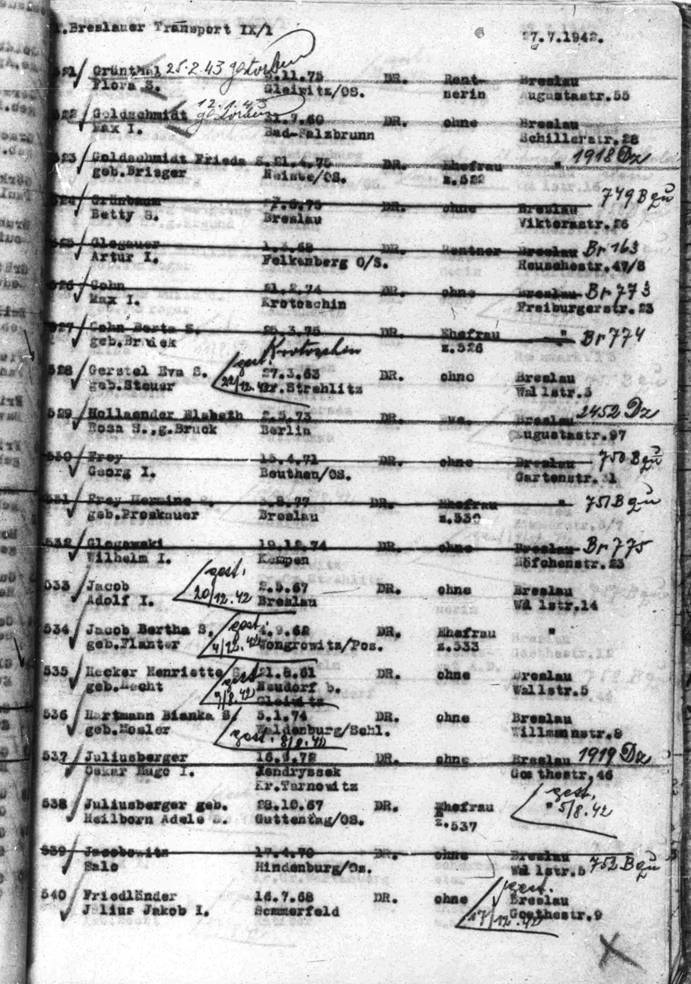 .Breslauer Transport IX/1 27.7.1942.
521 Grünthal 25.2.43 gestorben .11.75 DR. Rent- Breslau
Flora S. Gleiwitz/OS. nerin Augustastr.55
522 Goldschmidt 12.1.43 gestorben .9.60 DR. ohne Breslau
Max I. Bad-Salzbrunn Schillerstr.28
523 Goldschmidt Frieda S. 21.4.75 DR. Ehefrau " 1918 Dz
geb.Brieger Neisse/OS. z.522
524 Grünbaum DR. ohne Breslau 749 B
Betty S. Breslau Viktorastr.26
525 Glogauer 1.3.68 DR. Rentner Breslau Br 163
Artur I. Falkenberg O/S. Reuschestr.47/8
526 Cohn 21.2.74 DR. ohne Breslau Br 773
Max I. Krotoschin Freiburgerstr.23
527 Cohn Berta S. .3.75 DR. Ehefrau " Br 774
geb. Krotoschin z.526
528 Gerstel Eva S. gest. 27.3.63 DR. ohne Breslau
geb.Steuer 22/12.42 Gr.Strehlitz Wallstr.5
529 Hollaender Elsbeth 2.5.73 DR. Breslau 2452 Dz
Rosa S.,g.Bruck Berlin Augustastr.97
530 Frey 15.4.71 DR. ohne Breslau 750 B
Georg I. Beuthen/OS. Gartenstr.31
531 Frey Hermine S. .8.77 DR. Ehefrau " 751 B
geb.Proskauer Breslau z.530
532 Glogowski 19.12.74 DR. ohne Breslau Br 775
Wilhelm I. Kempen Höfchenstr.23
533 Jacob gest. 2.5.67 DR. ohne Breslau
Adolf I. 20/12.42 Breslau Wallstr.14
534 Jacob Bertha S. gest. .9.68 DR. Ehefrau "
geb.Planter Wongrowitz/Pos. z.533
535 Hecker Henriette S. gest. 21.8.61 DR. ohne Breslau
geb.Hecht 9/8.42 Neudorf b. Wallstr.5
Gleiwitz
536 Hartmann Bianka S. 5.1.74 DR. ohne Breslau
geb.Mosler gest. 8/8.42 Waldenburg/Schl. Willmannstr.8
537 Juliusberger 16.9.72 DR. ohne Breslau 1919 Dz
Oskar Hugo I. Xendryssek Goethestr.46
Kr.Tarnowitz
538 Juliusberger geb. 28.10.67 DR. Ehefrau " gest. 5/8.42
Heilborn Adele S. Guttentag/OS. z.537
539 Jacobowitz 17.4.70 DR. ohne Breslau
Salo Hindenburg/Os. Wallstr.5 752 B
540 Friedländer 16.7.68 DR. ohne gest. Breslau
Julius Jakob I. Sommerfeld 17/12.42 Goethestr.9
X